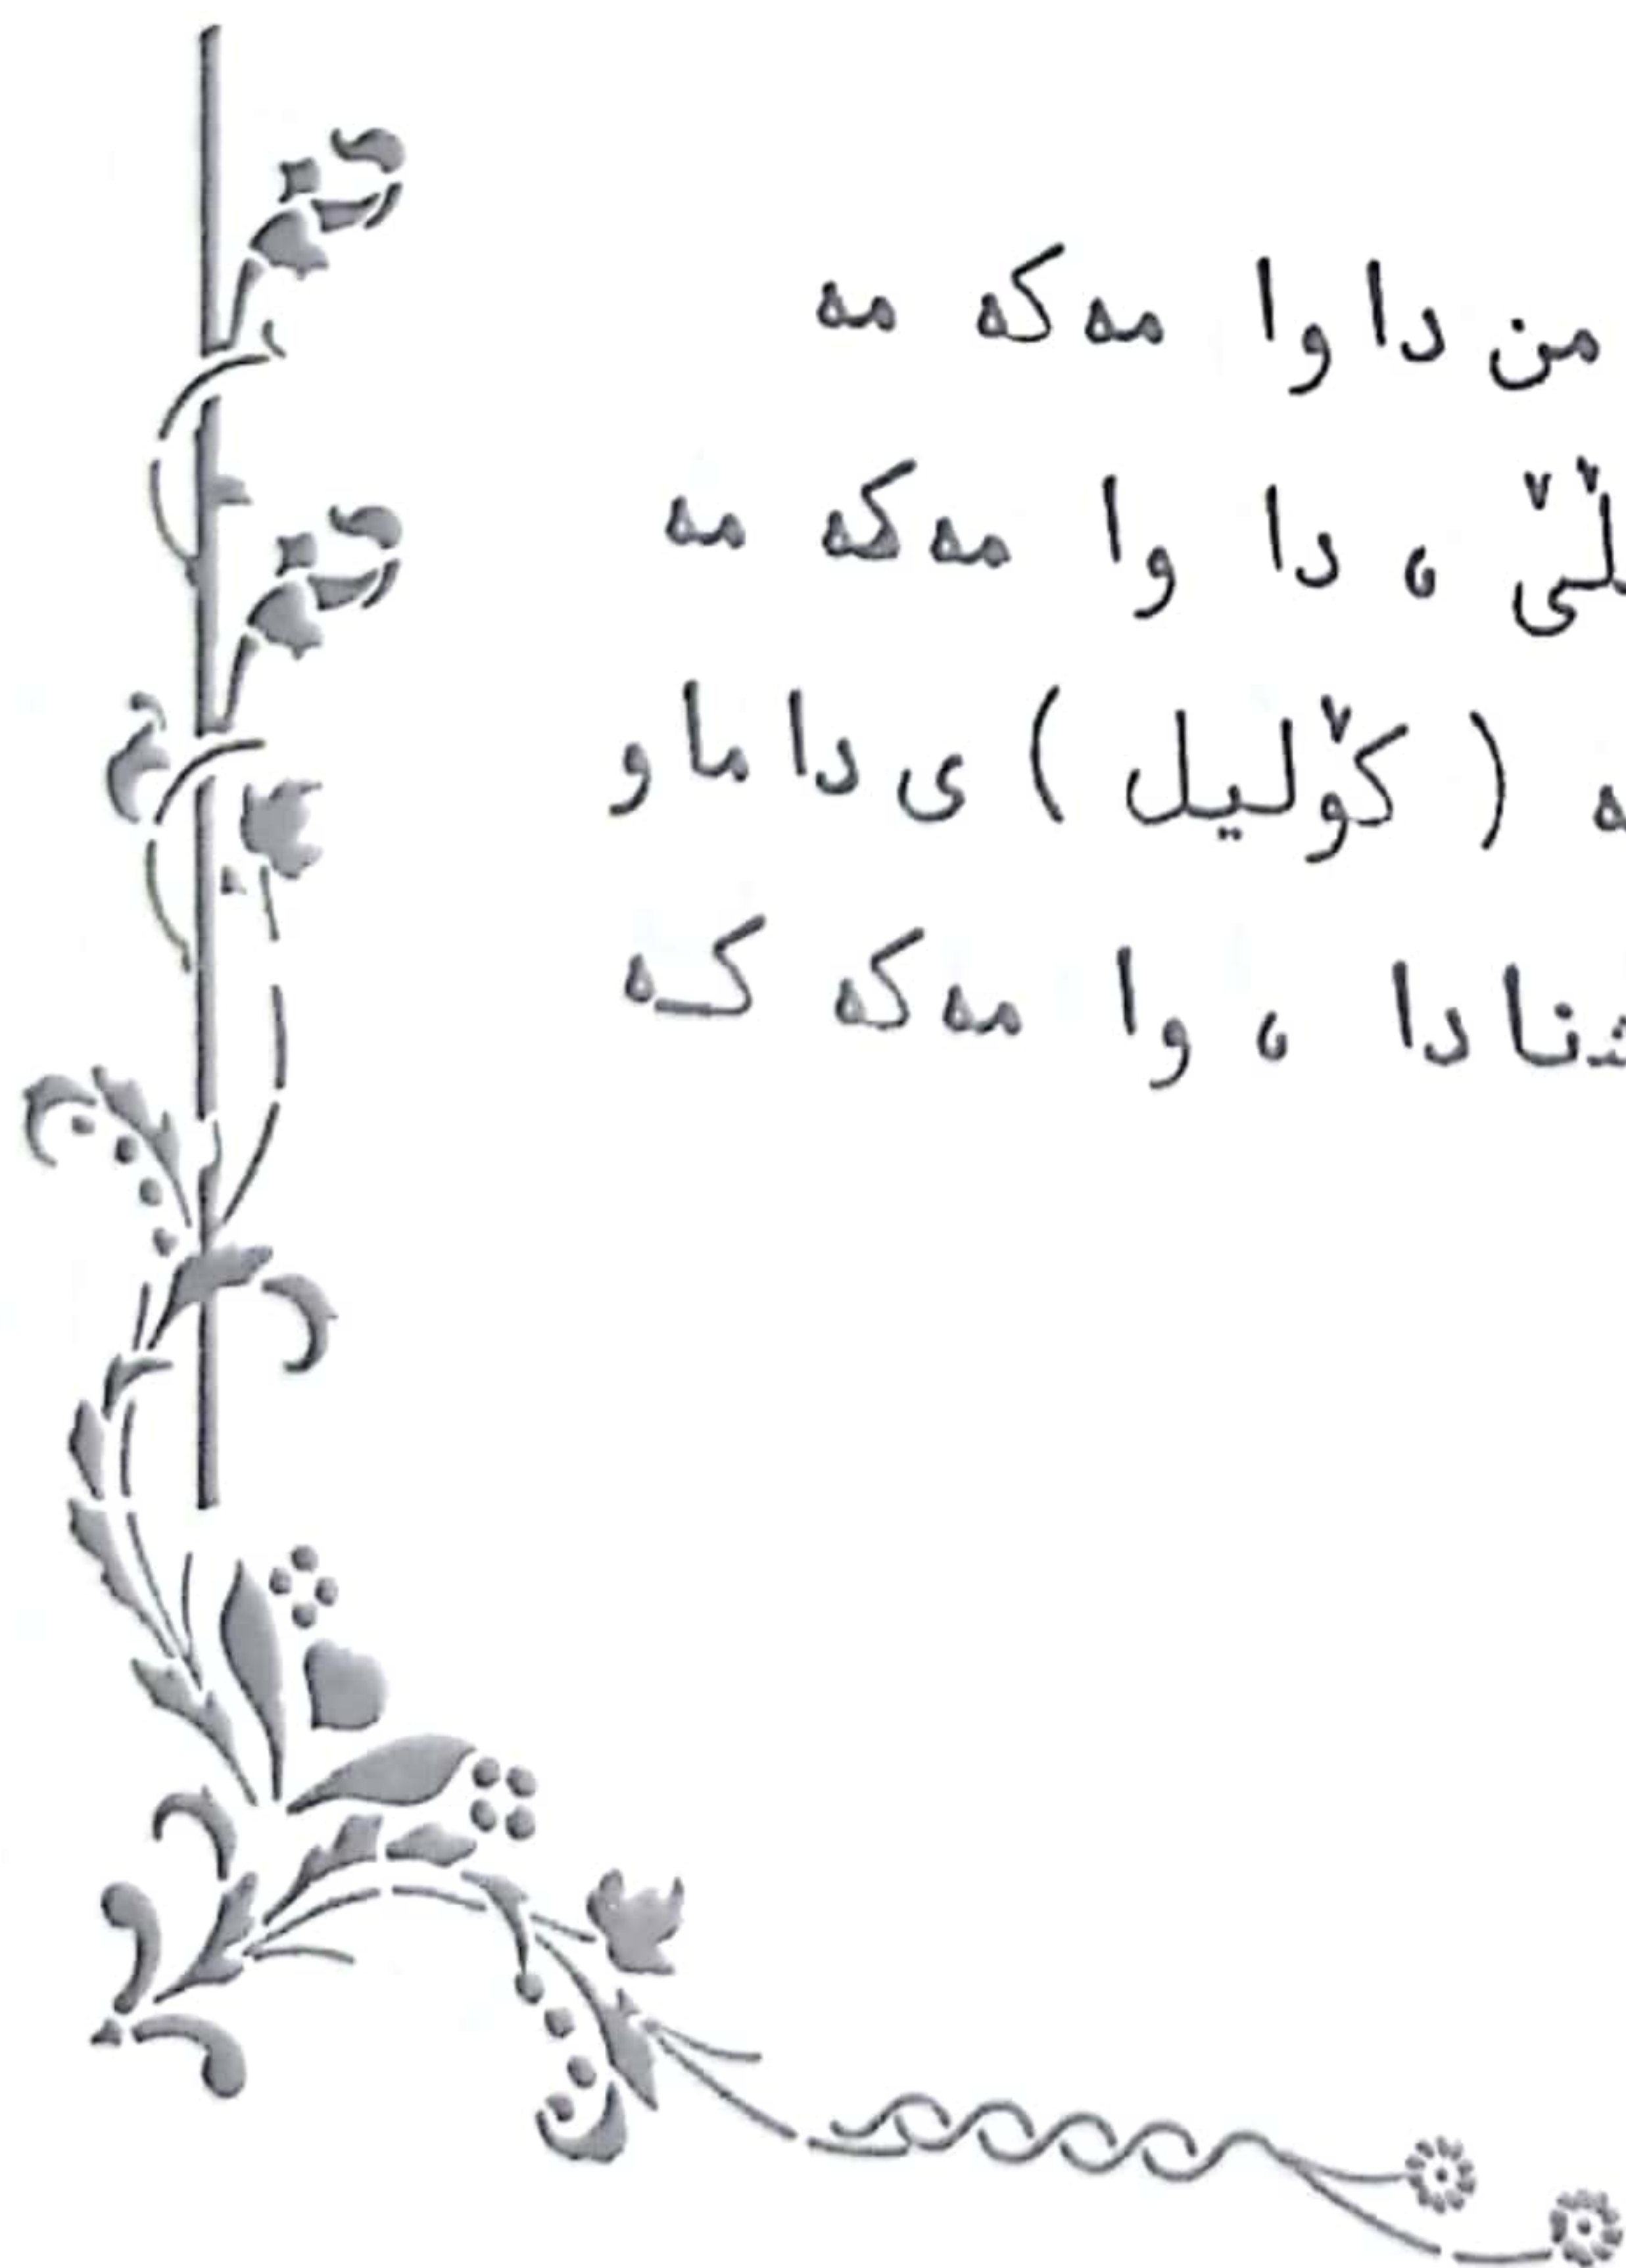 من داوا مەکە مە
، دا وا مەکە مە
( کۆلیل ) ی داماو
، وا مەکە کە